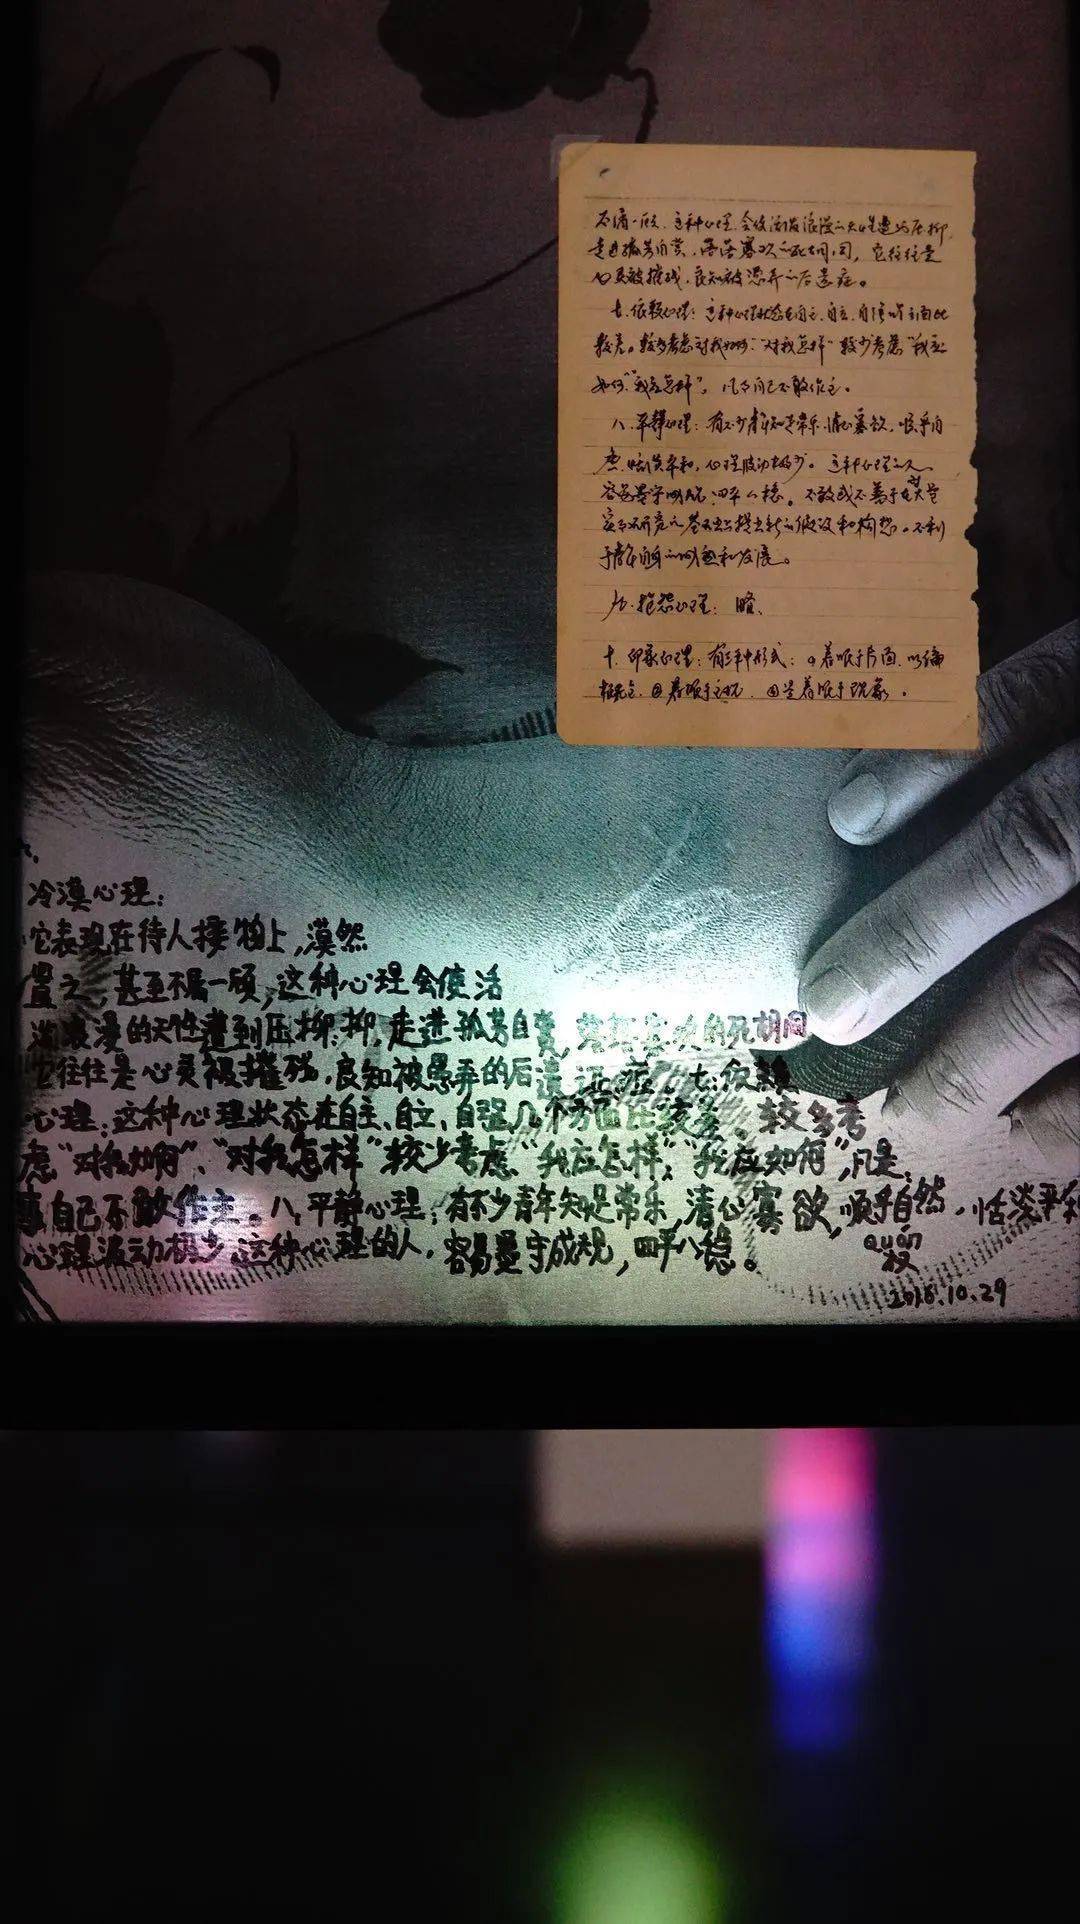 不屑一顾、这种心理会使活泼浪漫的天性遭到压抑,
走进孤芳自赏,落落寡欢的死胡同,它往往是
心灵被摧残,良知被愚弄的后遗症。
七.依赖心理:这种心理状态在自立、自强
较差。较多考虑"对我如何"、"对我怎样"较少考虑"我应
如何""我应怎样",凡事自己不敢作主。
八.平静心理:有不少青年知足常乐,清心寡欲,顺乎自
然,恬淡平和,心理波动极少。这种心理的人,
容易墨守成规,四平八稳。不敢或不善于在对大量
提出新的假设和构想。不利
于青年自身的成熟和发展。
九.抱怨心理:略、
十.印象心理:有三种形式:着眼于片面,以偏
概全,着眼于主观,是着眼于现象。
冷漠心理:
它表现在待人接物上,漠然
置之,甚至不屑一顾,这种心理会使活
泼浪漫的天性遭到压抑,抑,走进孤芳自赏,落落寡欢的死胡同
它往往是心灵被摧残,良知被愚弄的后遗证症。七:依赖
心理:这种心理状态在自主、自立、自强几个方面比较差。较多考
虑"对我如何"、"对我怎样"较少考虑"我应怎样","我应如何",凡是,
事自己不敢作主。八,平静心理:有不少青年知足常乐,清心寡欲,顺乎自然,恬淡平和
心理波动极少,这种心理的人,容易墨守成规,四平八稳。
quán
权
2016.10.29